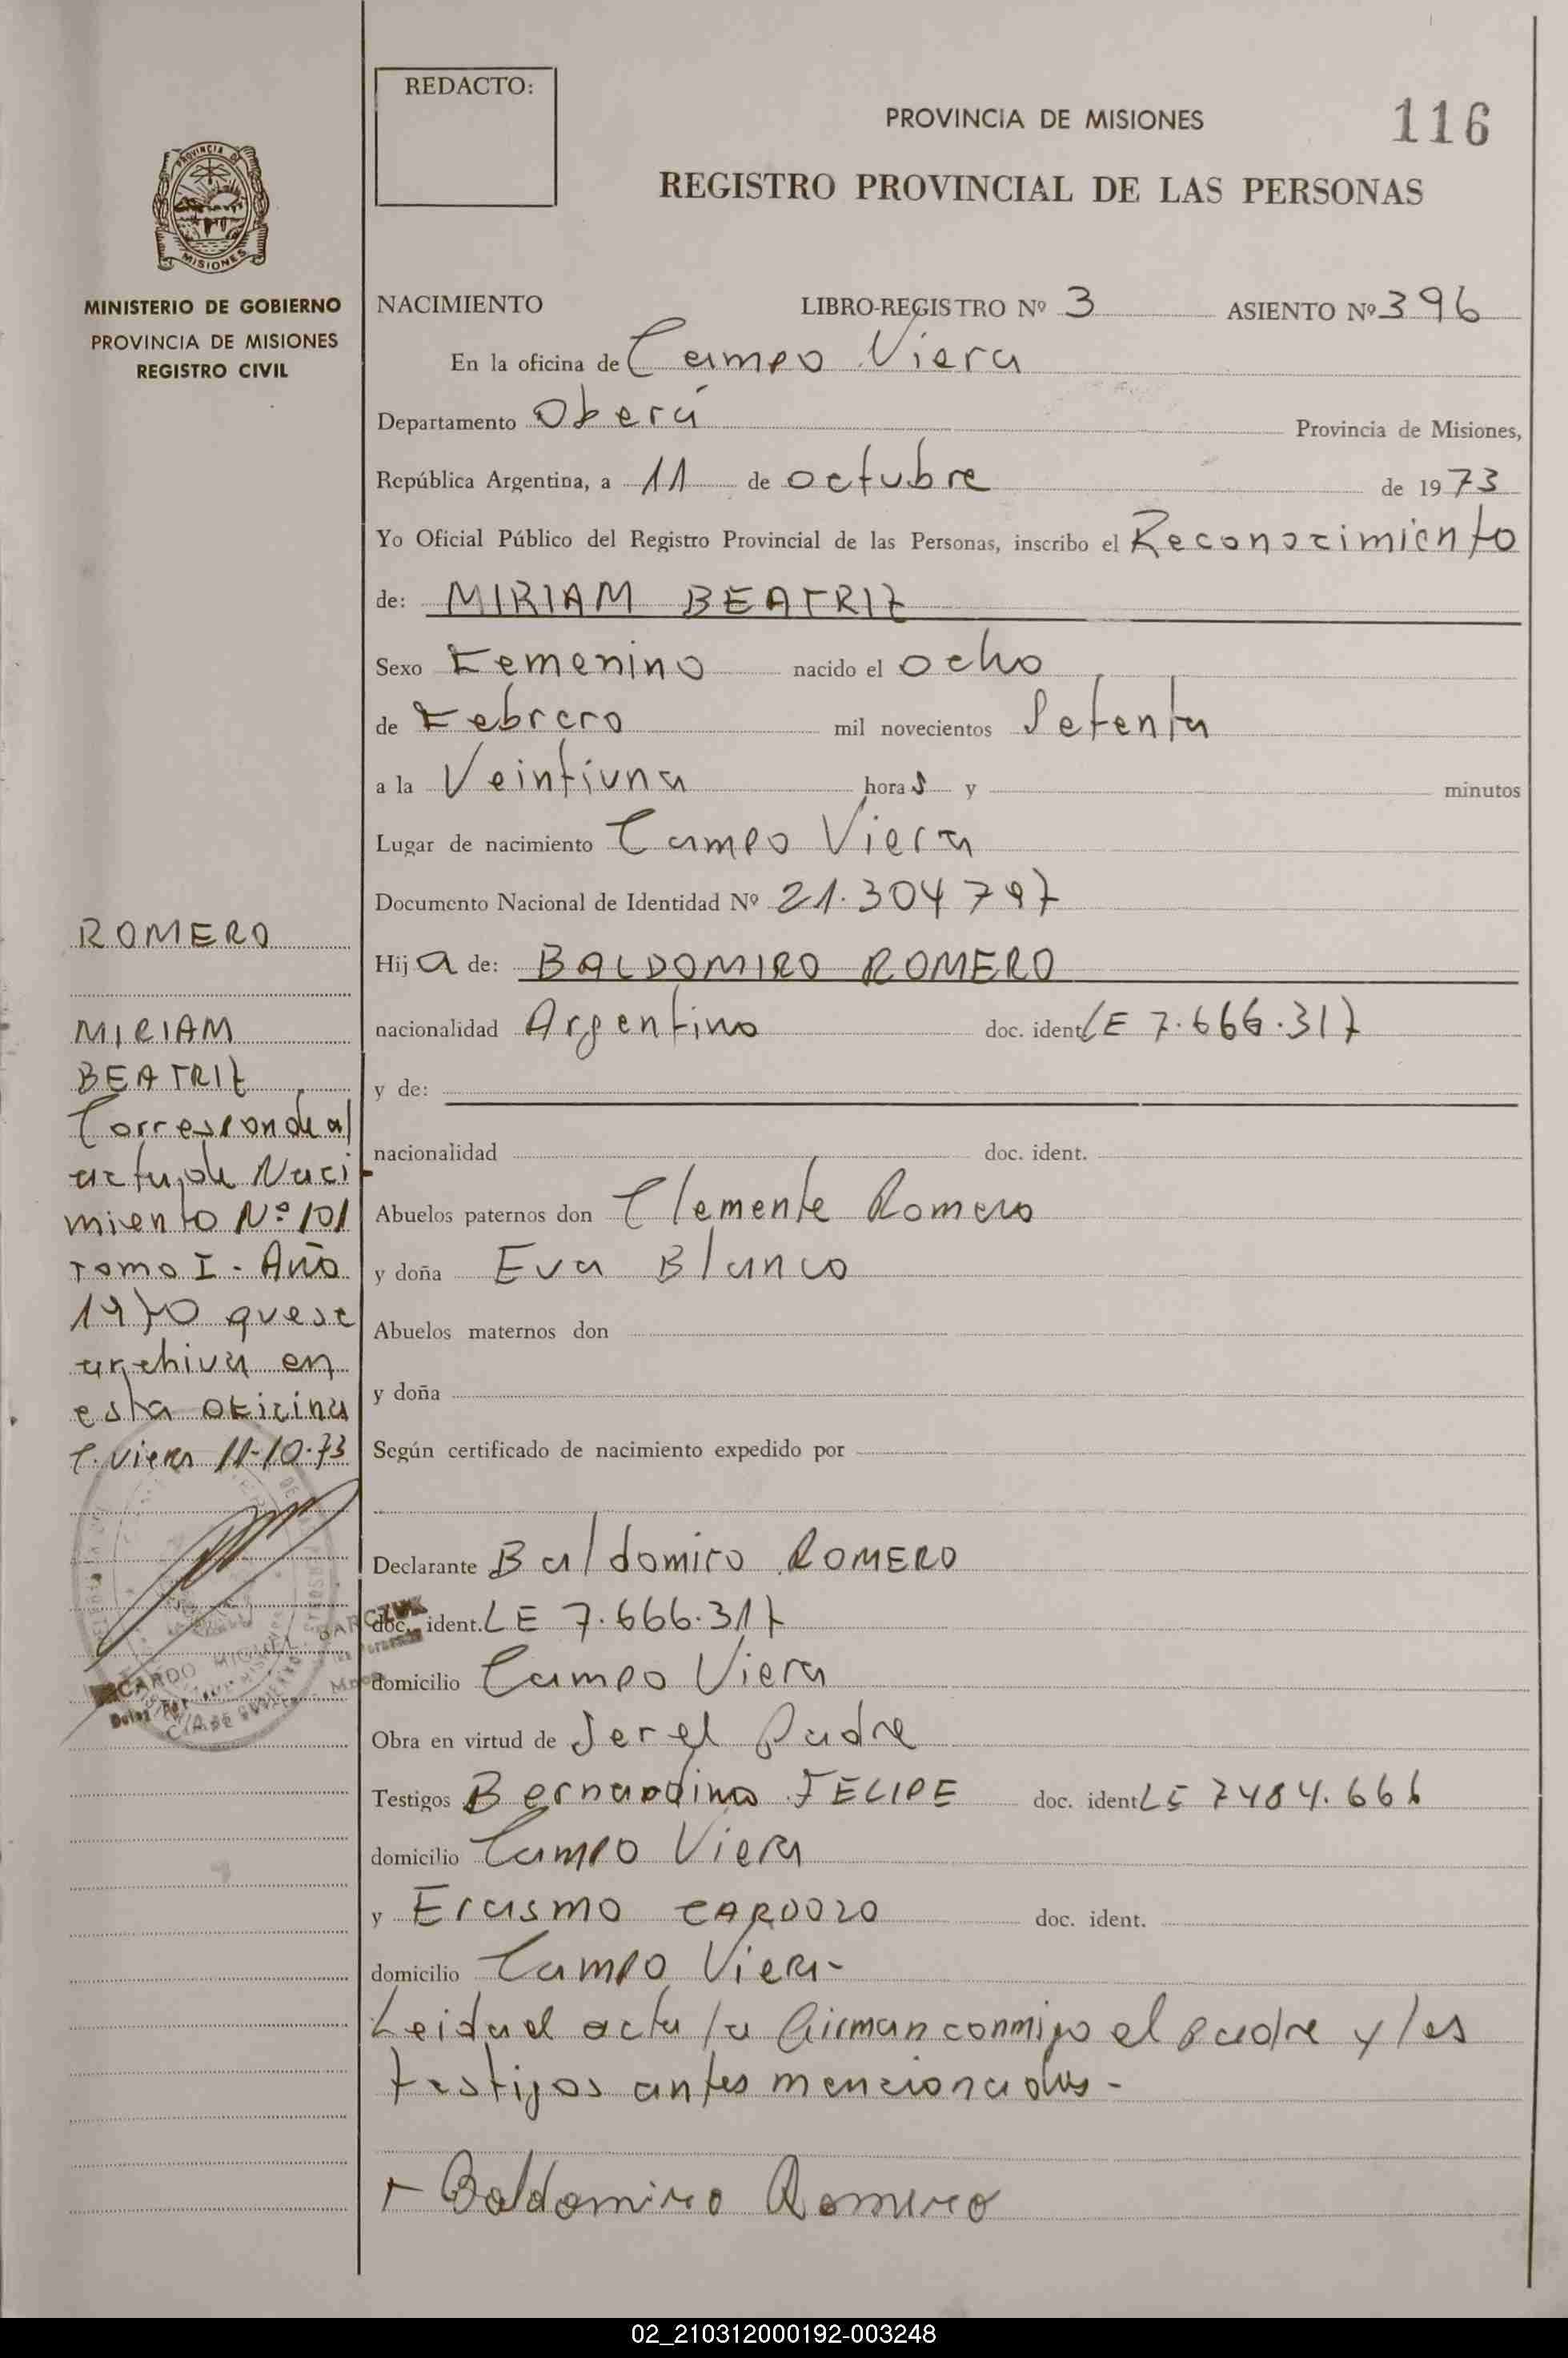 REDACTO:
PROVINCIA DE MISIONES
116
REGISTRO PROVINCIAL DE LAS PERSONAS
PROVINCIA DE
MISIONES
MINISTERIO DE GOBIERNO
PROVINCIA DE MISIONES
REGISTRO CIVIL
NACIMIENTO LIBRO-REGISTRO Nº 3 ASIENTO Nº 396
En la oficina de Campo Viera
Departamento Oberá Provincia de Misiones,
República Argentina, a 11 de octubre de 1973
Yo Oficial Público del Registro Provincial de las Personas, inscribo el Reconocimiento
de: MIRIAM BEATRIZ
Sexo Femenino nacido el ocho
de Febrero mil novecientos Setenta
a la Veintiuna horas y minutos
Lugar de nacimiento Campo Viera
Documento Nacional de Identidad Nº 21.304797
Hija de: BALDOMIRO ROMERO
nacionalidad Argentino doc. ident. LE 7.666.317
y de:
nacionalidad doc. ident.
Abuelos paternos don Clemente Romero
y doña Eva Blanco
Abuelos maternos don
y doña
Según certificado de nacimiento expedido por
Declarante Baldomiro ROMERO
doc. ident. LE 7.666.317
domicilio Campo Viera
Obra en virtud de Ser el Padre
Testigos Bernardino FELIPE doc. ident. LE 7484.666
domicilio Campo Viera
y Erasmo CARDOZO doc. ident.
domicilio Campo Viera-
Leida el acta la firman conmigo el padre y los
testigos antes mencionados-
Baldomiro Romero
ROMERO
MIRIAM
BEATRIZ
Corresponde al
acta de Naci
miento Nº 101
Tomo I - Año
1970 que se
archiva en
esta oficina
C. Viera 11-10-73
RICARDO MIGUEL BARCZUK
02_210312000192-003248